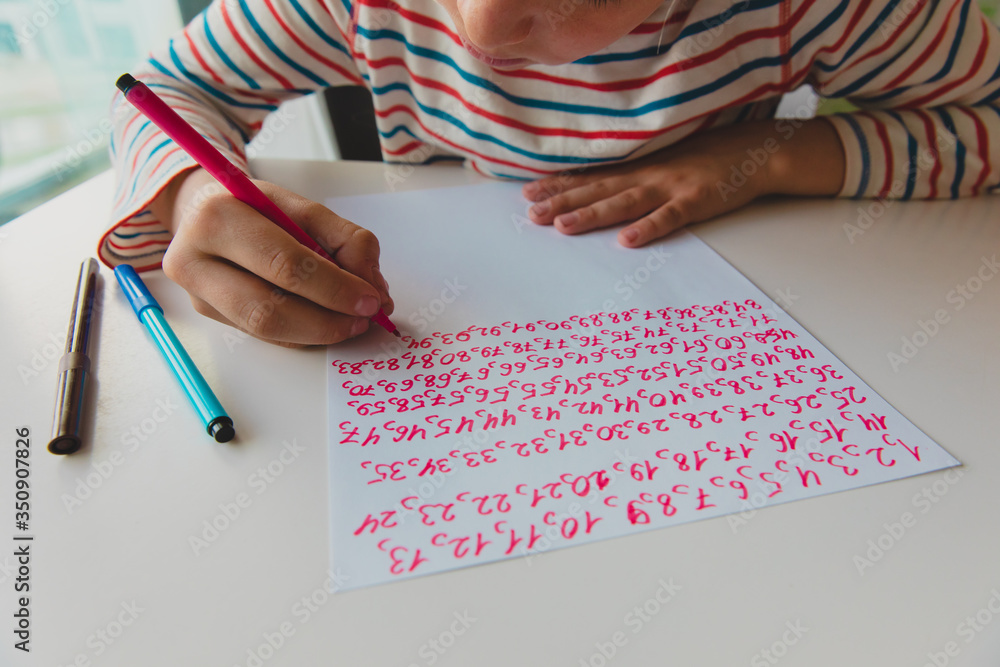 1, 2, 3, 4, 5, 6, 7, 8, 9, 10, 11, 12, 13
14, 15, 16, 17, 18, 19, 20, 21, 22, 23, 24
25, 26, 27, 28, 29, 30, 31, 32, 33, 34, 35,
36, 37, 38, 39, 40, 41, 42, 43, 44, 45, 46, 47
48, 49, 50, 51, 52, 53, 54, 55, 56, 57, 58, 59,
60, 61, 62, 63, 64, 65, 66, 67, 68, 69, 70,
71, 72, 73, 74, 75, 76, 77, 78, 79, 80, 81, 82, 83,
84, 85, 86, 87, 88, 89, 90, 91, 92, 93, 94
Adobe Stock | #350907826